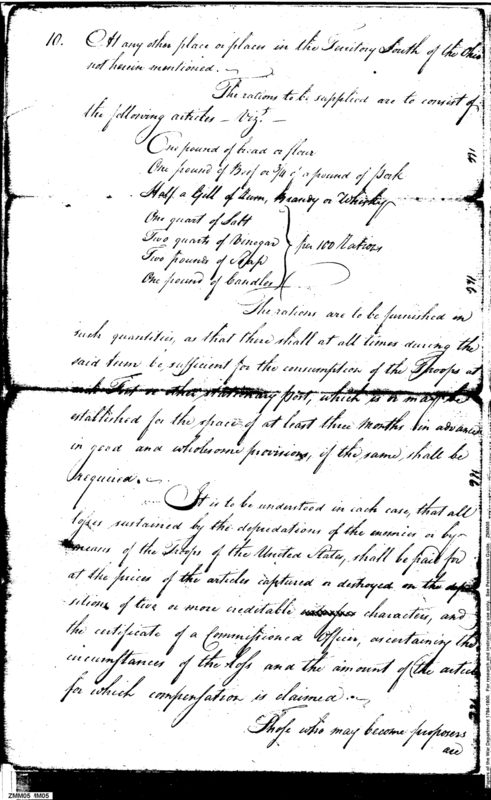 10. At any other place or places in the Territory South of the Ohio
not herein mentioned. -
The rations to be supplied are to consist of
the following articles - Vizt -
One pound of bread or flour
One pound of Beef or 3/4 of a pound of Pork
Half a Gill of Rum, Brandy or Whisky
One quart of Salt
Two quarts of Vinegar
Two pounds of Soap
One pound of Candles
per 100 Rations
The rations are to be furnished in
such quantities, as that there shall at all times during the
said term be, sufficient for the consumption of the Troops at
each Post or other stationary post, which is or may be
established for the space of at least three Months in advance
in good and wholesome provisions, if the same shall be
required. -
It is to be understood in each case, that all
losses sustained by the depredations of the enemies or by
means of the Troops of the United States, shall be paid for
at the prices of the articles captured or destroyed on the depo
sitions of two or more creditable characters, and
the certificate of a Commissioned Officer, ascertaining the
circumstances of the loss and the amount of the articles
for which compensation is claimed. -
Those who may become proposers
are
ZMM05